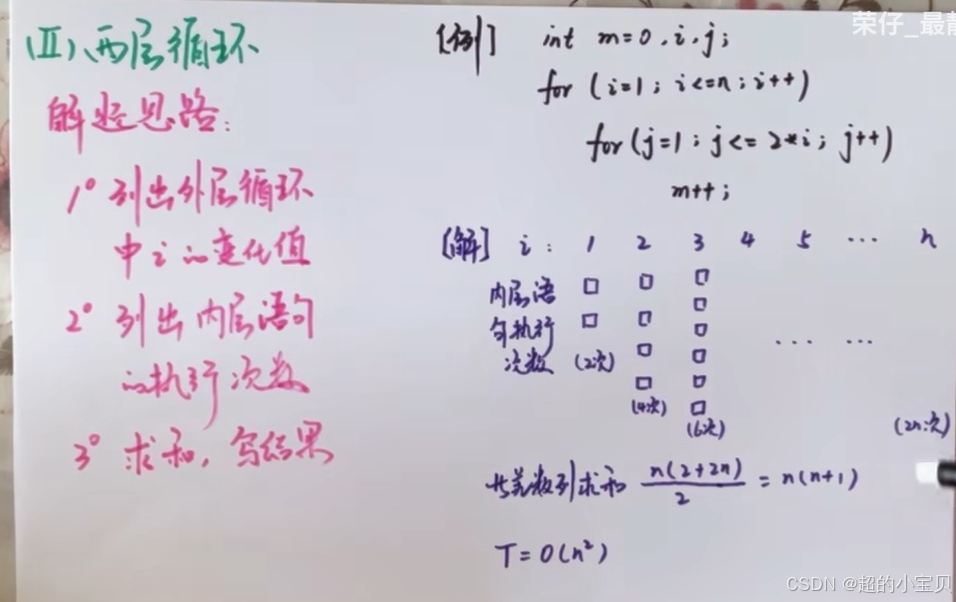 (Ⅱ)、两层循环
解题思路:
1° 列出外层循环
中i的变化值
2° 列出内层语句
的执行次数
3° 求和,写结果
荣仔_最
[例] int m=0,i,j;
for (i=1; i<=n; i++)
for(j=1; j<=2*i; j++)
m++;
[解] i: 1 2 3 4 5 ... n
内层语
句执行
次数 (2次)
(4次)
(6次)
... ...
(2n次)
等差数列求和 n(2+2n)/2 = n(n+1)
T=O(n²)
CSDN @超的小宝贝